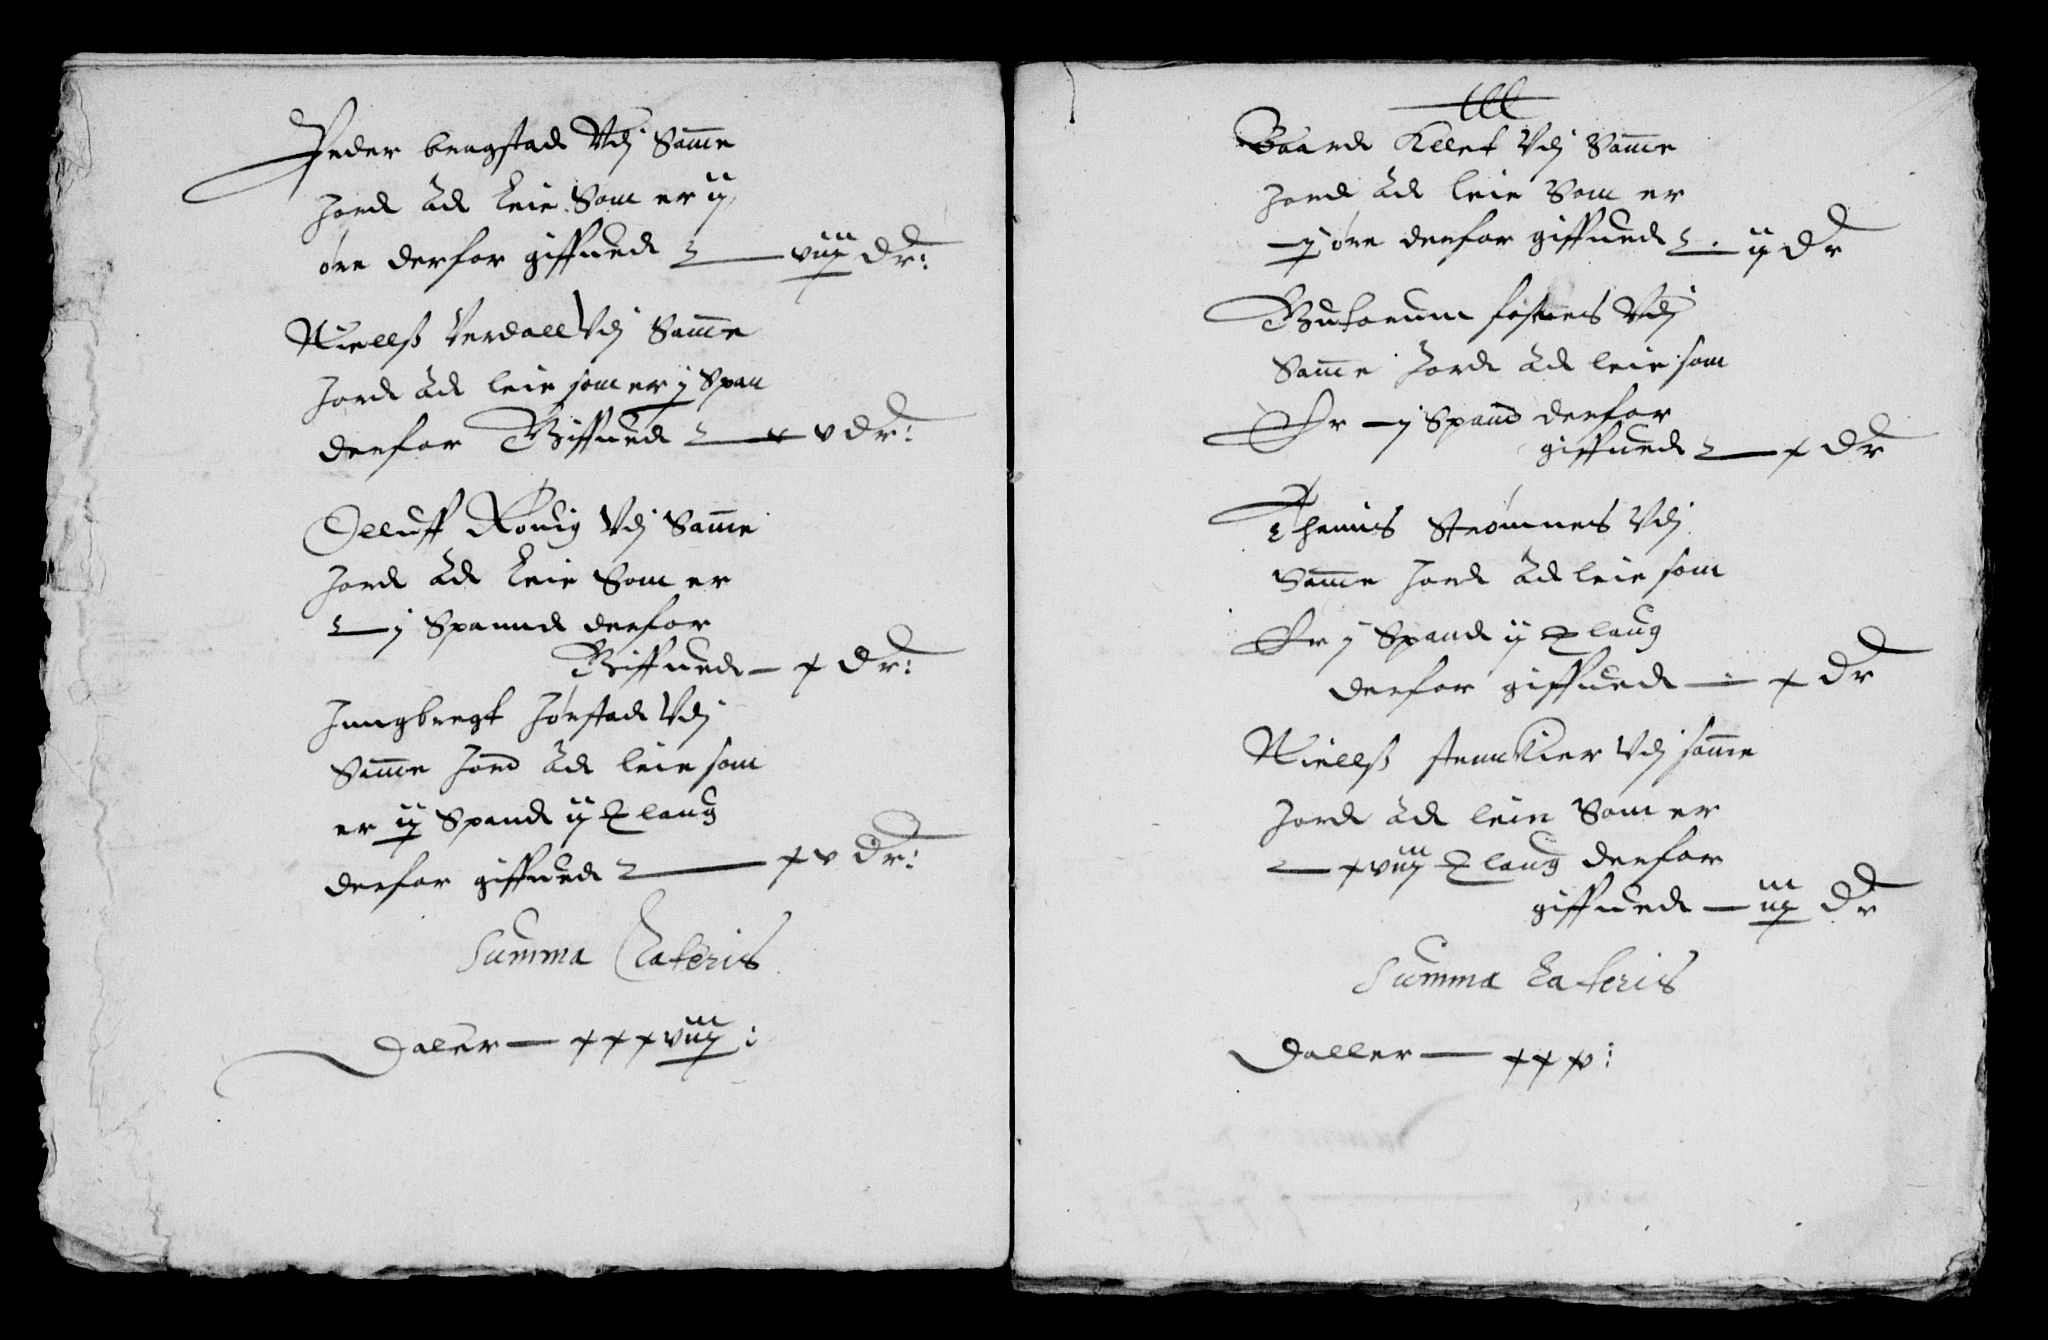 Peder bragstad Vdj Samme
Jord Att Leie Som er ij
øre derfor giffued — viij dr:
Niellß Verdall Vdj Samme
Jord Att leie som er j Span
derfor Giffued — v dr:
Olluff Røuig Vdj Samme
Jord Att Leie Som er
— j Spannd derfor
Giffued — x dr:
Jnngbregt Jørstad Vdj
Samme Jord Att leie som
er ij Spand ij Øelaug
derfor giffued — xv dr:
Summa Lateris
Daler — xxxviij :
Baard Kllet Vdj Samme
Jord Att leie Som er
— j øre derfor giffued — ij dr
Samme Jord Att leie som
Er — j Spand derfor
giffued — x dr
Strømnes Vdj
Samme Jord Att leie som
Er j Spand ij Øelaug
derfor giffued — x dr
Niellß stenckier Vdj samme
Jord Att leie Som er
— xviij Øelaug derfor
giffued — iiij dr
Summa Lateris
Daller —